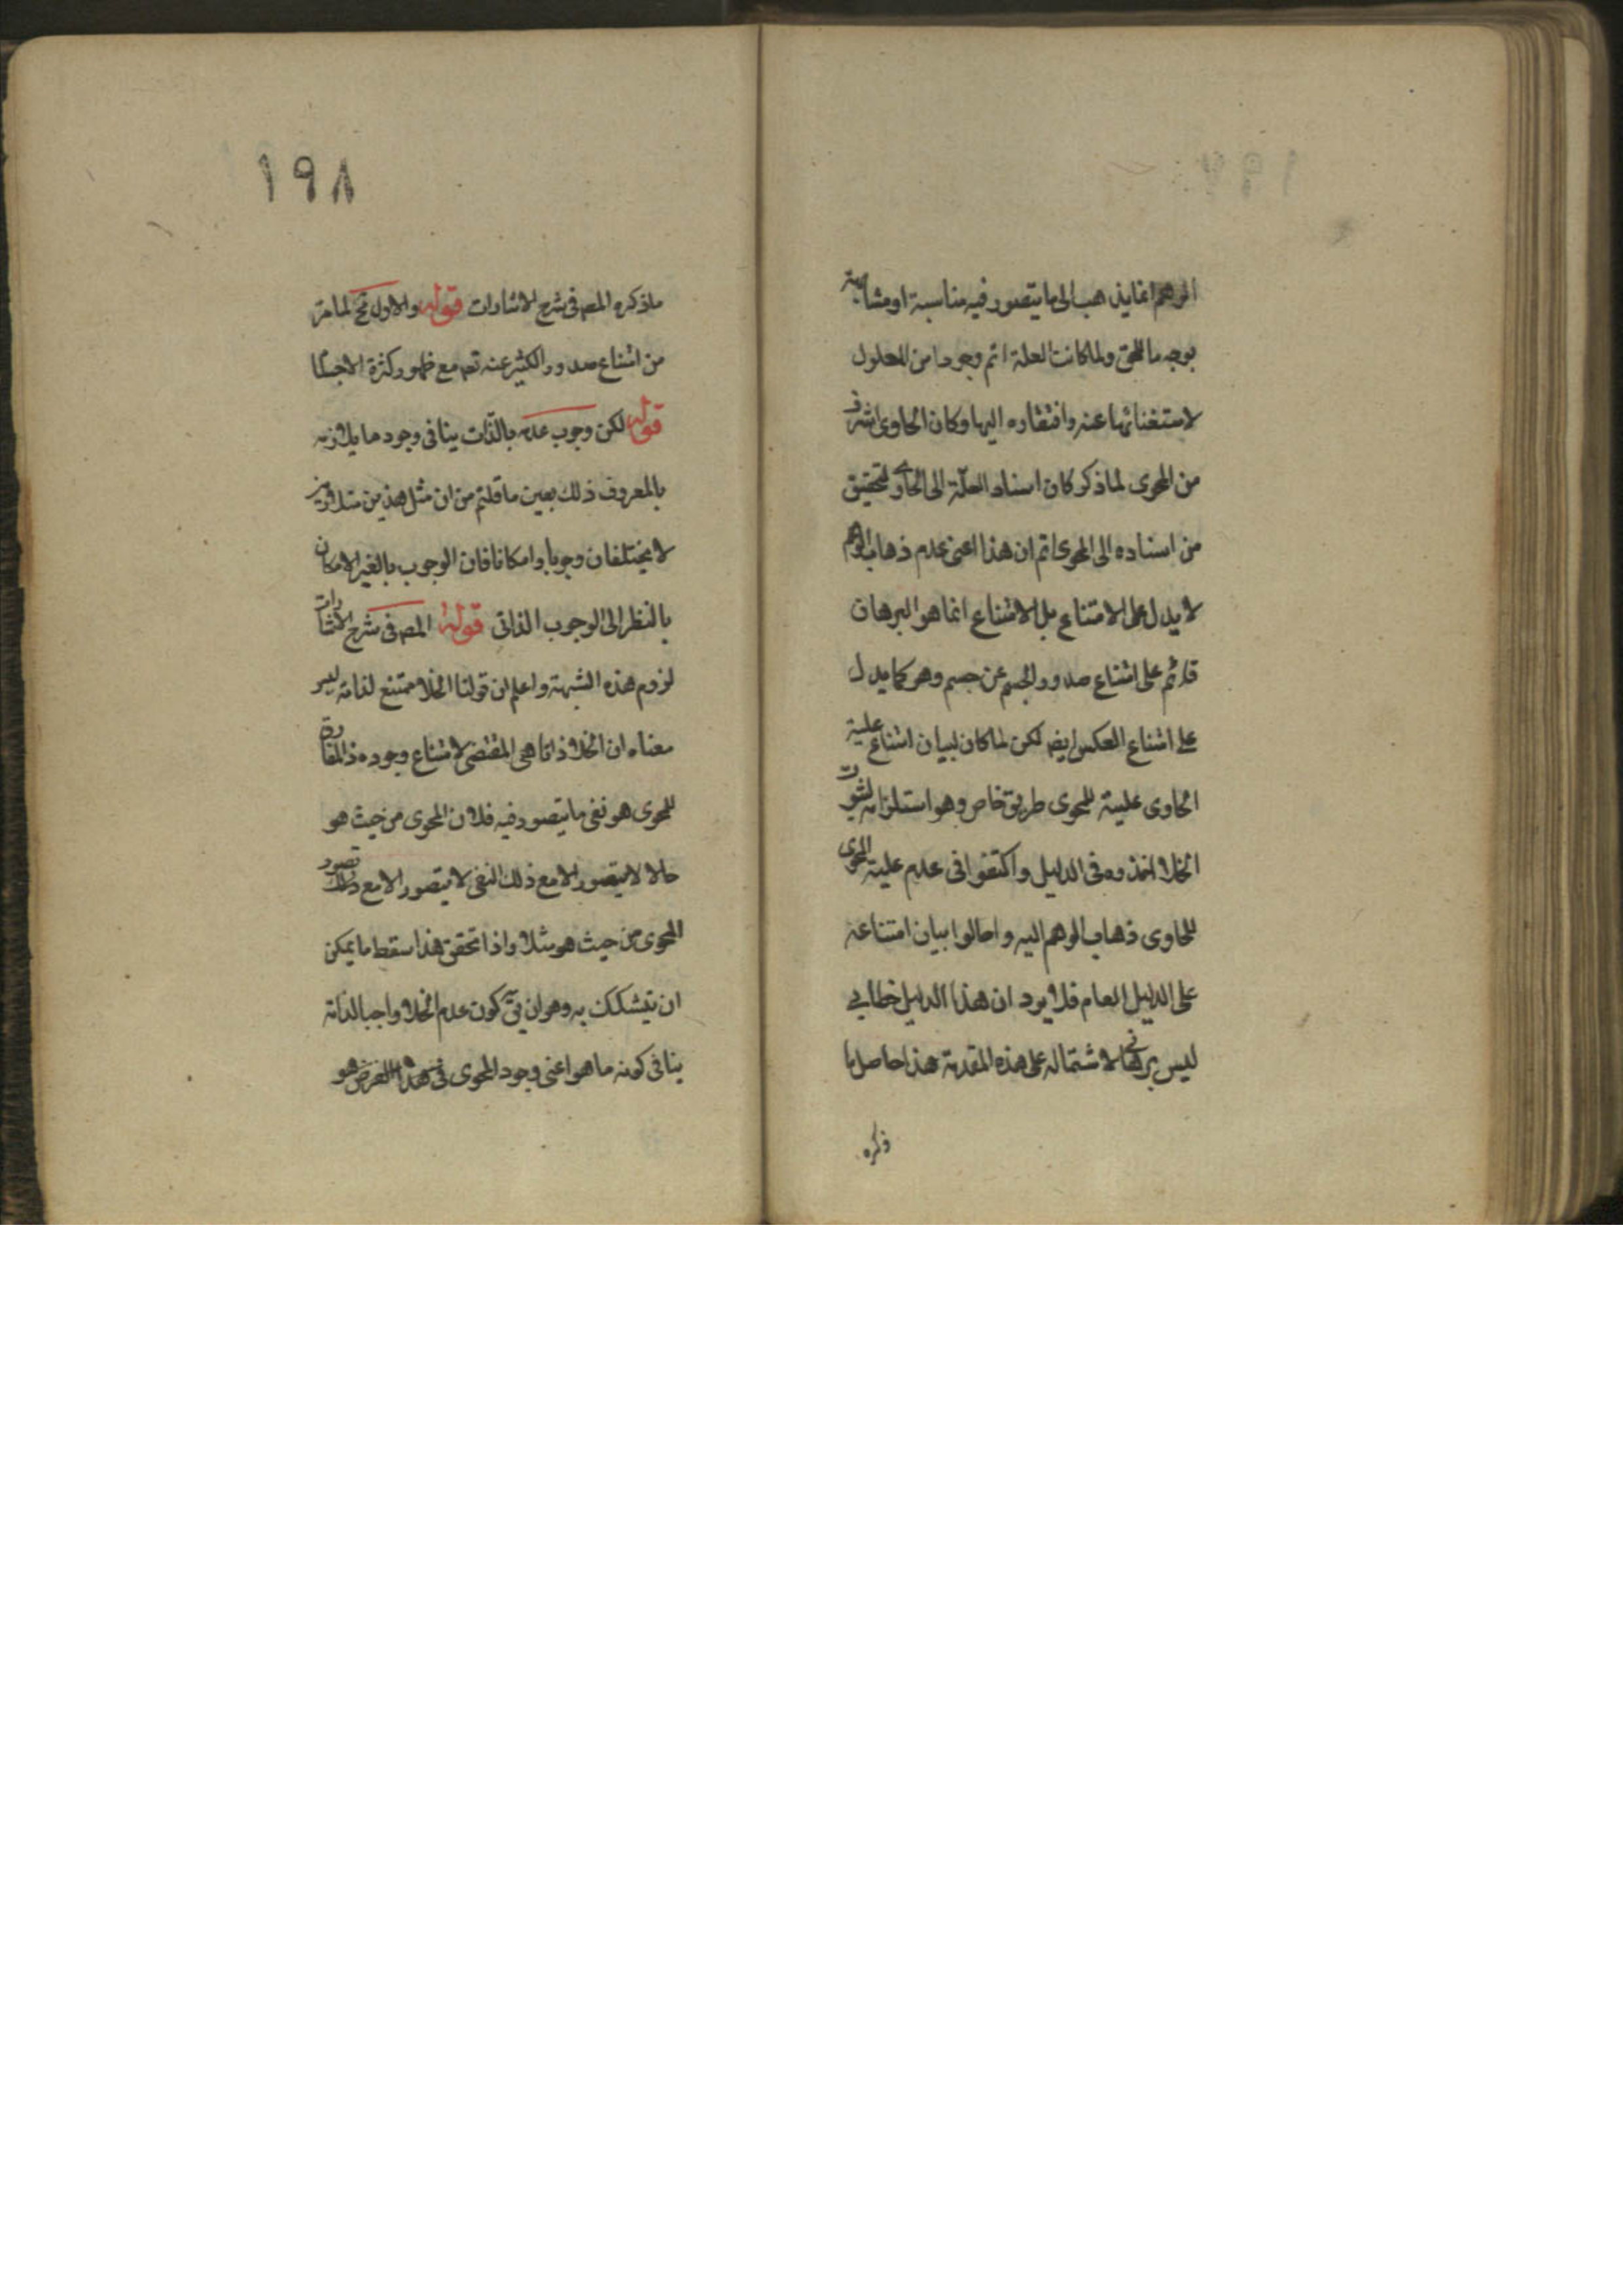 الوهم انما يذهب الى ما يتصور فيه مناسبة او مشابهة
بوجه ما للحق ولما كانت العلة اتم وجودا من المعلول
لاستغنائها عنه وافتقاره اليها وكان الحاوى اشرف
من المحوى لما ذكر كان اسناد العلّة الى الحاوى
من اسناده الى المحوى ثم ان هذا اعنى عدم ذهاب الوهم
لا يدل على الامتناع بل الامتناع انما هو البرهان
قائم على امتناع صدور الجسم عن جسم وهو كما يدل
على امتناع العكس ايضا لكن لما كان لبيان امتناع علية
الحاوى علية للمحوى طريق خاص وهو استلزامه لثبوت
الخلاء اخذوه فى الدليل واكتفوا فى عدم علية المحوى
للحاوى ذهاب الوهم اليه واحالوا بيان امتناعه
على الدليل العام فلا يرد ان هذا الدليل خطابى
ليس برهانى لاشتماله على هذه المقدمة هذا حاصل ما
ذكره
١٩٨
ماذكره المصـ فى شرح الاشارات قوله والاول مح لما مر
من امتناع صدور الكثير عنه تعـ مع ظهور كثرة الاجسام
قوله لكن وجوب عدمه بالذات ينافى وجود ما يلازمه
بالمعروف ذلك بعين ما قلتم من ان مثل هذين متلازمين
لا يختلفان وجوبا وامكانا فان الوجوب بالغير الامكان
بالنظر الى الوجوب الذاتى قوله المصـ فى شرح الاشارات
لزوم هذه الشبهة واعلم ان قولنا الخلاء ممتنع لذاته ليس
معناه ان الخلاء ذاتا هى المقتضى لامتناع وجوده
للمحوى هو نفى ما يتصور فيه فلان المحوى من حيث هو
حالا لا يتصور الا مع ذلك النفى لا يتصور الا مع تصور ذلك
المحوى من حيث هو مثلا واذا تحقق هذا سقط ما يمكن
ان يتشكك به وهو ان يق كون عدم الخلاء واجبا لذاته
ينافى كونه ما هو اعنى وجود المحوى فى هذا الفرض هو